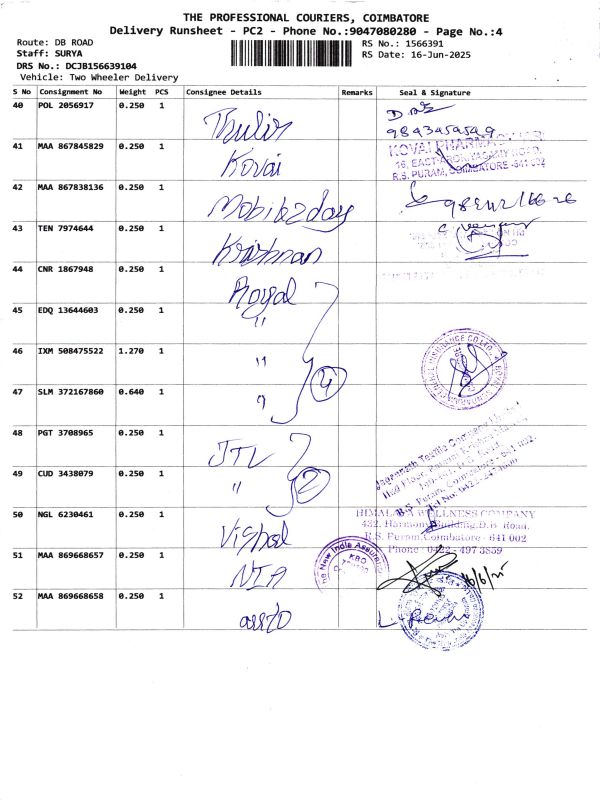 THE PROFESSIONAL COURIERS, COIMBATORE
Delivery Runsheet - PC2 - Phone No.:9047080280 - Page No.:4
Route: DB ROAD
Staff: SURYA
DRS No.: DCJB156639104
Vehicle: Two Wheeler Delivery
RS No.: 1566391
RS Date: 16-Jun-2025
S No Consignment No Weight PCS Consignee Details Remarks Seal & Signature
40 POL 2056917 0.250 1
41 MAA 867845829 0.250 1 Kovai
KOVAI PHARMA
R.S. PURAM, COIMBATORE -641 002
42 MAA 867838136 0.250 1 Mobile2day
43 TEN 7974644 0.250 1 Krishnan
44 CNR 1867948 0.250 1 Royal
45 EDQ 13644603 0.250 1 "
46 IXM 508475522 1.270 1 "
47 SLM 372167860 0.640 1 "
4
48 PGT 3708965 0.250 1 JTL
Jagannath Textile Company
49 CUD 3438079 0.250 1 "
2
R.S. Puram, Coimbatore - 641 002.
50 NGL 6230461 0.250 1 Vishal
HIMALAYA WELLNESS COMPANY
432, Harmony Building, D.B. Road,
R.S. Puram, Coimbatore - 641 002
Phone : 0422 - 497 3839
51 MAA 869668657 0.250 1 NIA
The New India Assurance
KBO
16/6/25
52 MAA 869668658 0.250 1